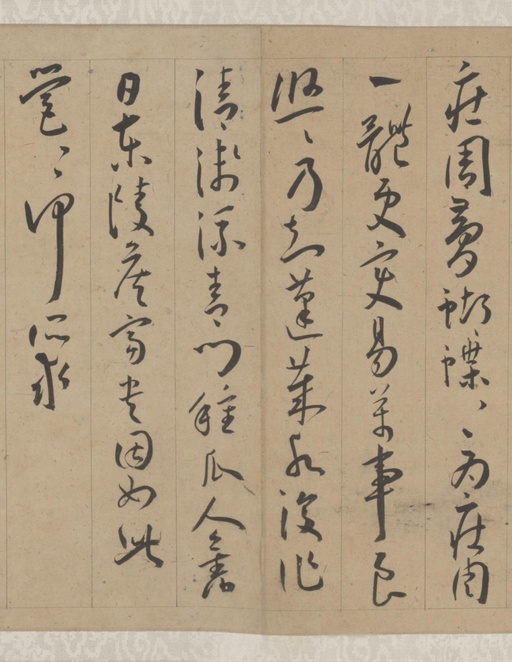 庄周夢蝴蝶〻〻為庄周
一體更変易萬事良
悠〻乃知蓬萊水復作
清淺流青門種瓜人舊
日東陵侯富貴固如此
營〻何所求